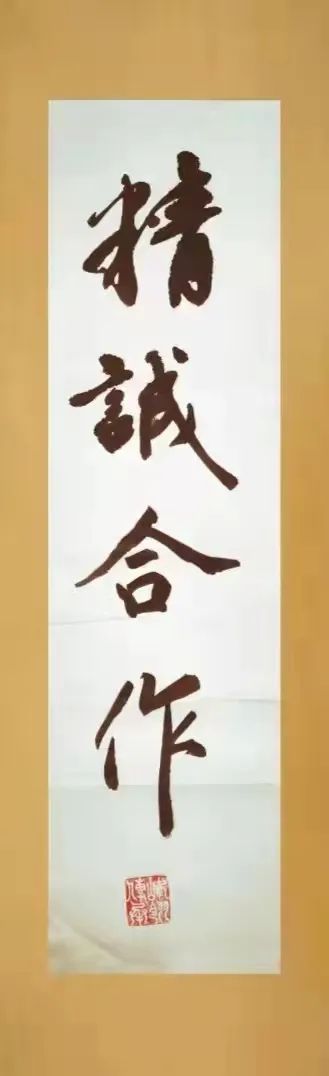 精誠合作